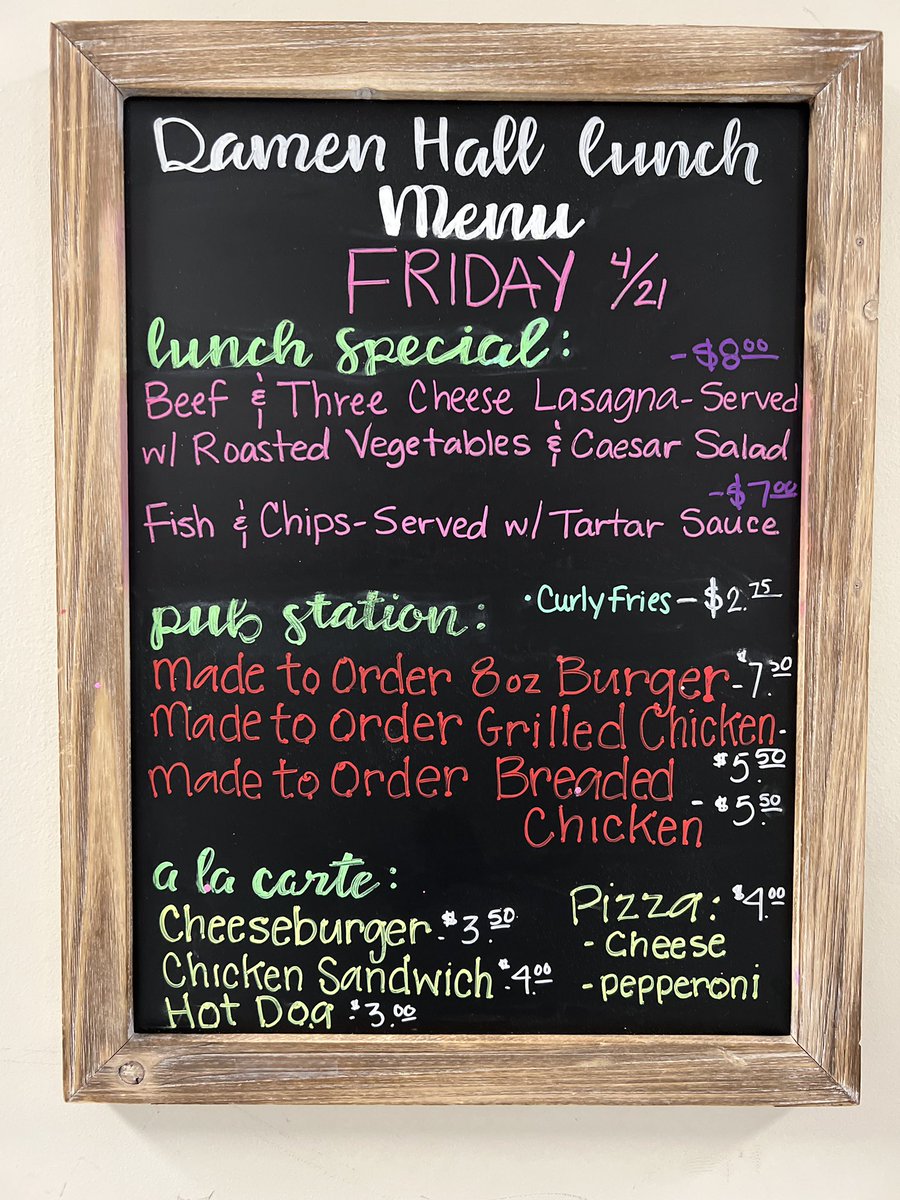 Damen Hall lunch
Menu
FRIDAY 4/21
lunch special:
-$8.00
Beef & Three Cheese Lasagna-Served
w/ Roasted Vegetables & Caesar Salad
-$7.00
Fish & Chips-Served w/ Tartar Sauce
pub station:
• Curly Fries - $2.75
Made to Order 8oz Burger -$7.50
Made to Order Grilled Chicken-
$5.50
Made to Order Breaded
Chicken - $5.50
a la carte:
Cheeseburger-$3.50
Chicken Sandwich-$4.00
Hot Dog $3.00
Pizza: $4.00
- Cheese
- pepperoni